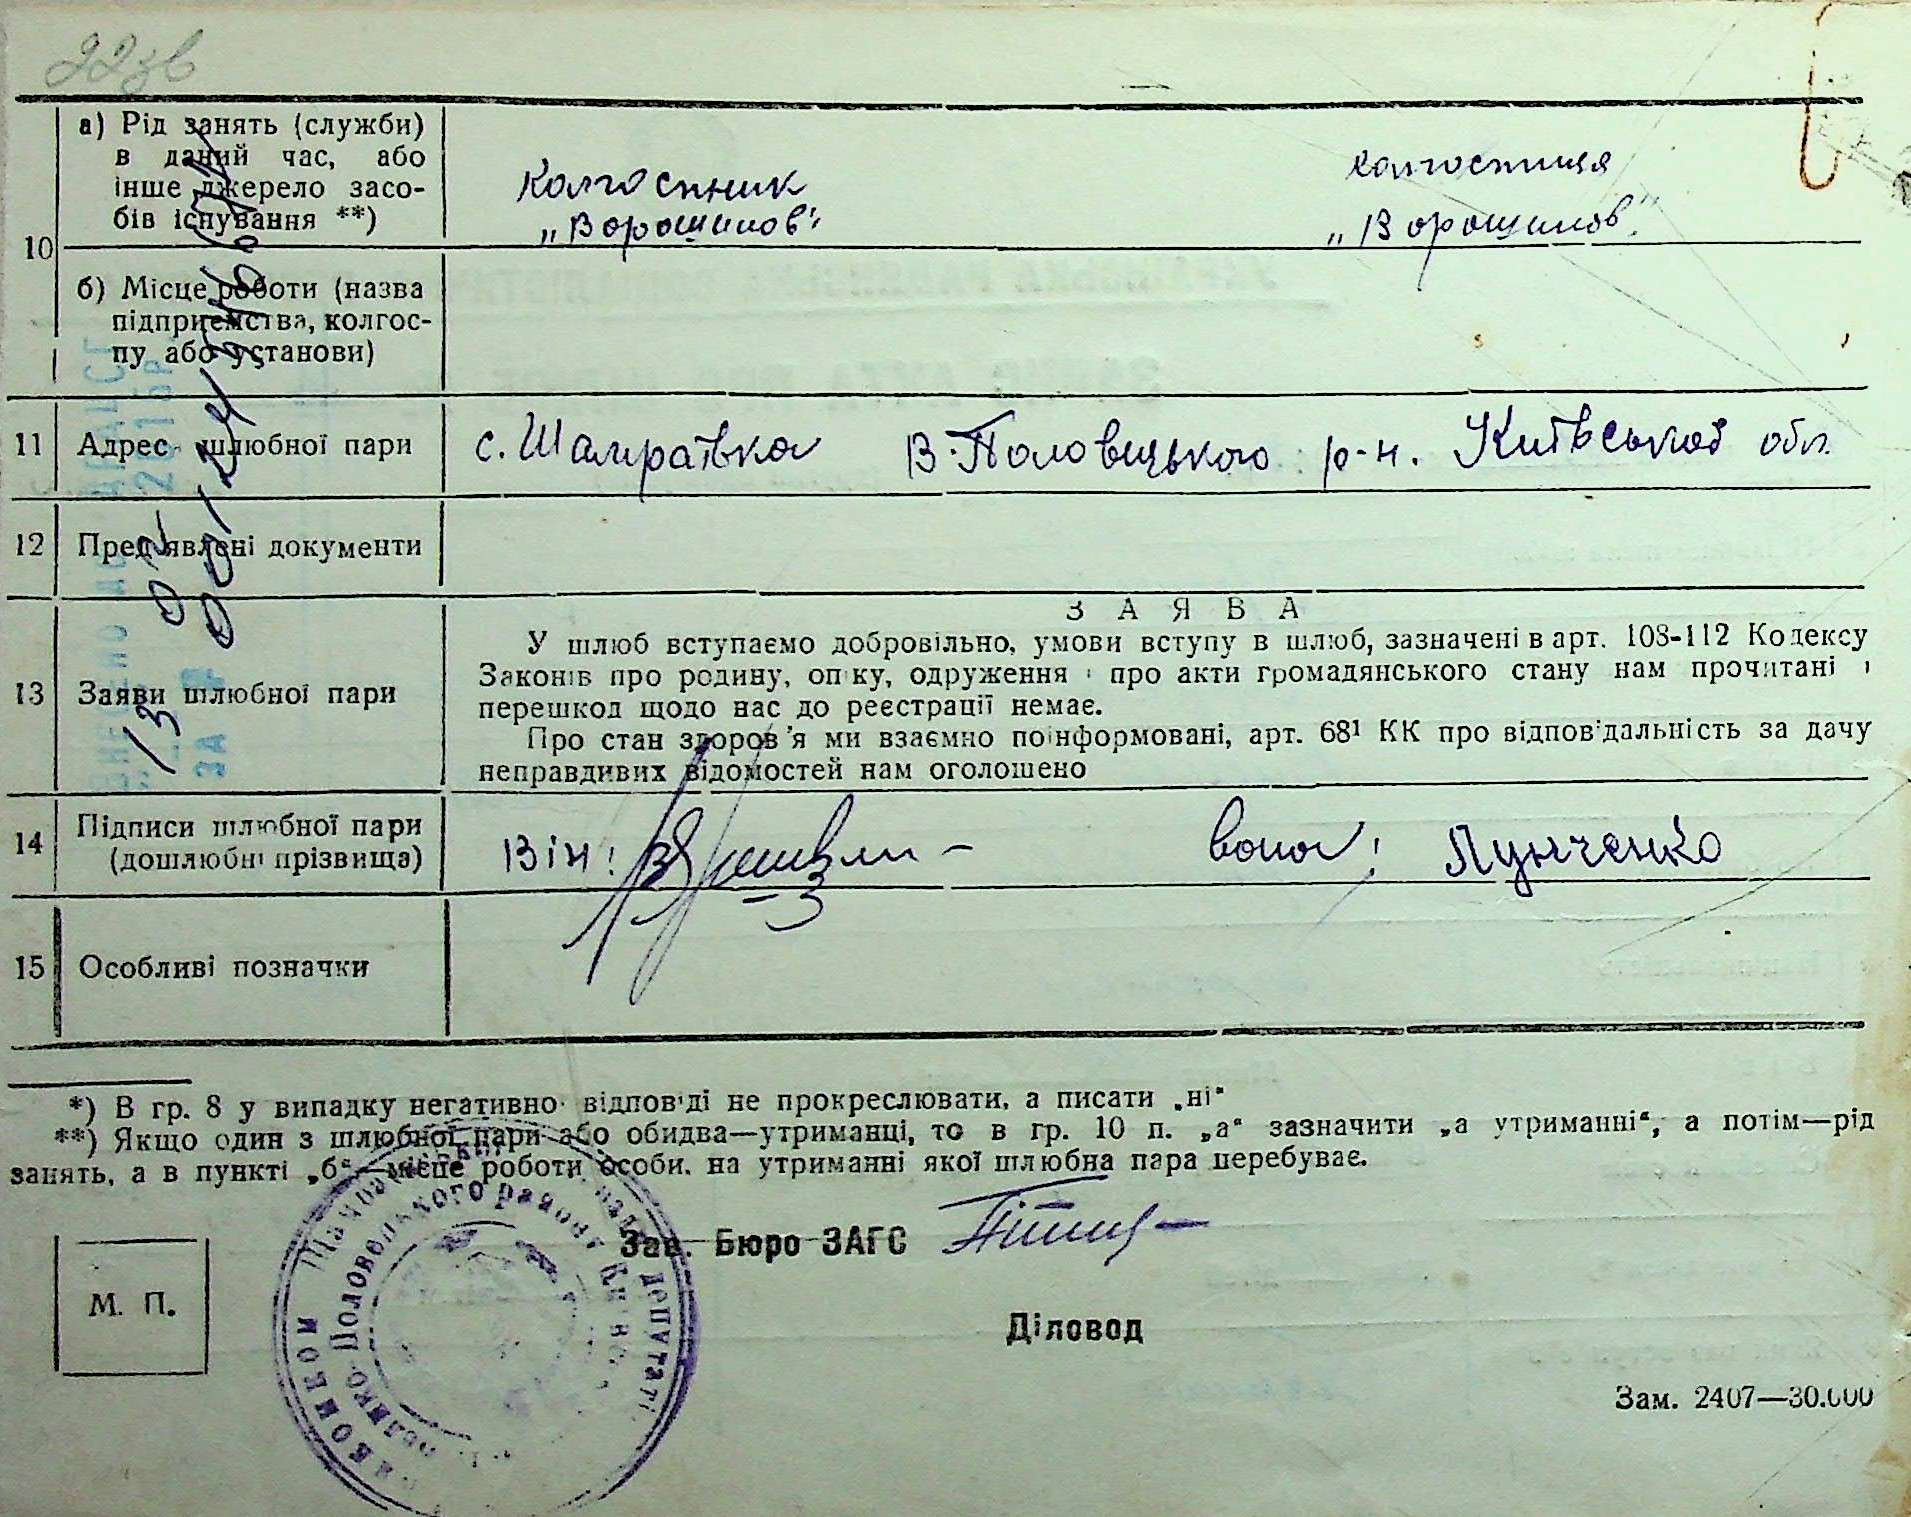 22зв
10
а) Рід занять (служби)
в даний час, або
інше джерело засо-
бів існування **)
Колгоспник
„Ворошилов“
колгоспниця
„Ворошилов“
б) Місце роботи (назва
підприємства, колгос-
пу або установи)
11 Адрес шлюбної пари с. Шамраївка В-Половецького р-н. Київської обл.
12 Пред'явлені документи
13 Заяви шлюбної пари
ЗАЯВА
У шлюб вступаємо добровільно, умови вступу в шлюб, зазначені в арт. 108-112 Кодексу
Законів про родину, опіку, одруження і про акти громадянського стану нам прочитані і
перешкод щодо нас до реєстрації немає.
Про стан здоров'я ми взаємно поінформовані, арт. 68¹ КК про відповідальність за дачу
неправдивих відомостей нам оголошено
14 Підписи шлюбної пари
(дошлюбні прізвища)
Він: вона: Лунченко
15 Особливі позначки
*) В гр. 8 у випадку негативної відповіді не прокреслювати, а писати „ні“
**) Якщо один з шлюбної пари або обидва—утриманці, то в гр. 10 п. „а“ зазначити „а утриманні“, а потім—рід
занять, а в пункті „б“—місце роботи особи, на утриманні якої шлюбна пара перебуває.
Зав. Бюро ЗАГС
М. П.
Діловод
Зам. 2407—30.000